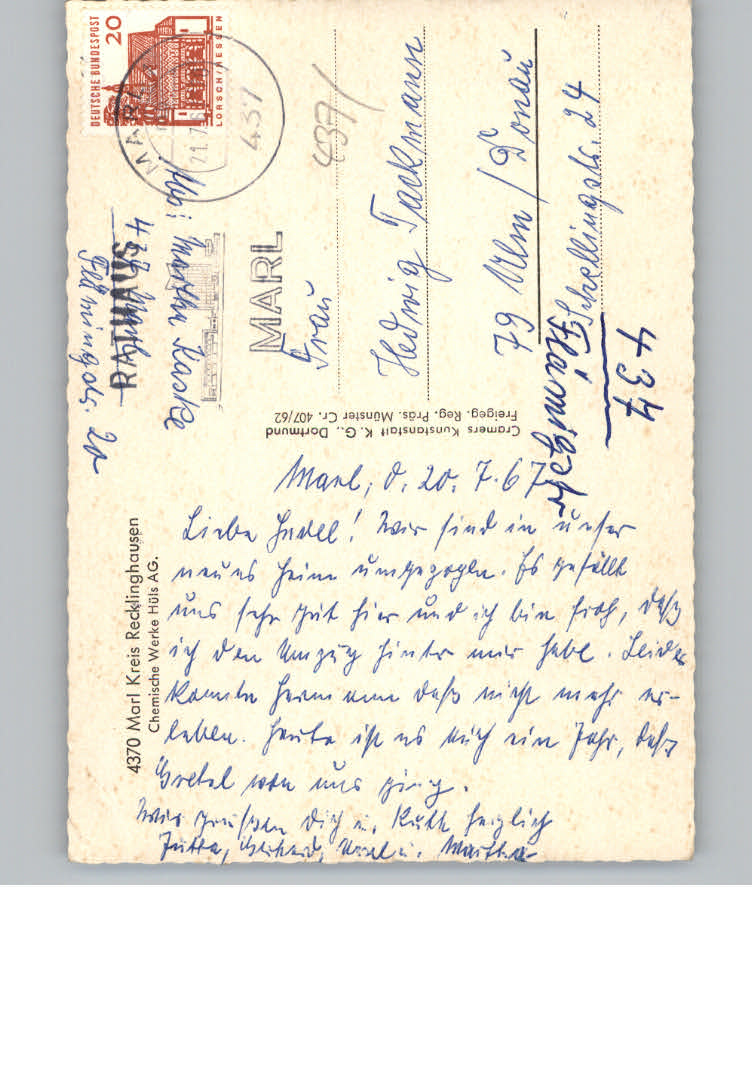 DEUTSCHE BUNDESPOST
20
LORSCH/HESSEN
MARL
21.7.6
437
4371
RATHAUS
MARL
Martha Kaske
437 Marl
Flämingstr. 20
Frau
Hedwig Tackmann
79 Ulm / Donau
Schellingstr. 24
437
Cramers Kunstanstalt K.G., Dortmund
Freigeg. Reg. Präs. Münster Cr. 407/62
4370 Marl Kreis Recklinghausen
Chemische Werke Hüls AG.
Marl, d. 20. 7. 67
Liebe Hedel! Wir sind in unser
neues Heim umgezogen. Es gefällt
uns sehr gut hier und ich bin froh, daß
ich den Umzug hinter mir habe. Leider
konnte Hermann daß nicht mehr er-
leben. Heute ist es auch ein Jahr, daß
Gretel von uns ging.
Wir grüßen Dich u. Ruth herzlich
Jutta, Gerhard, u. Martha